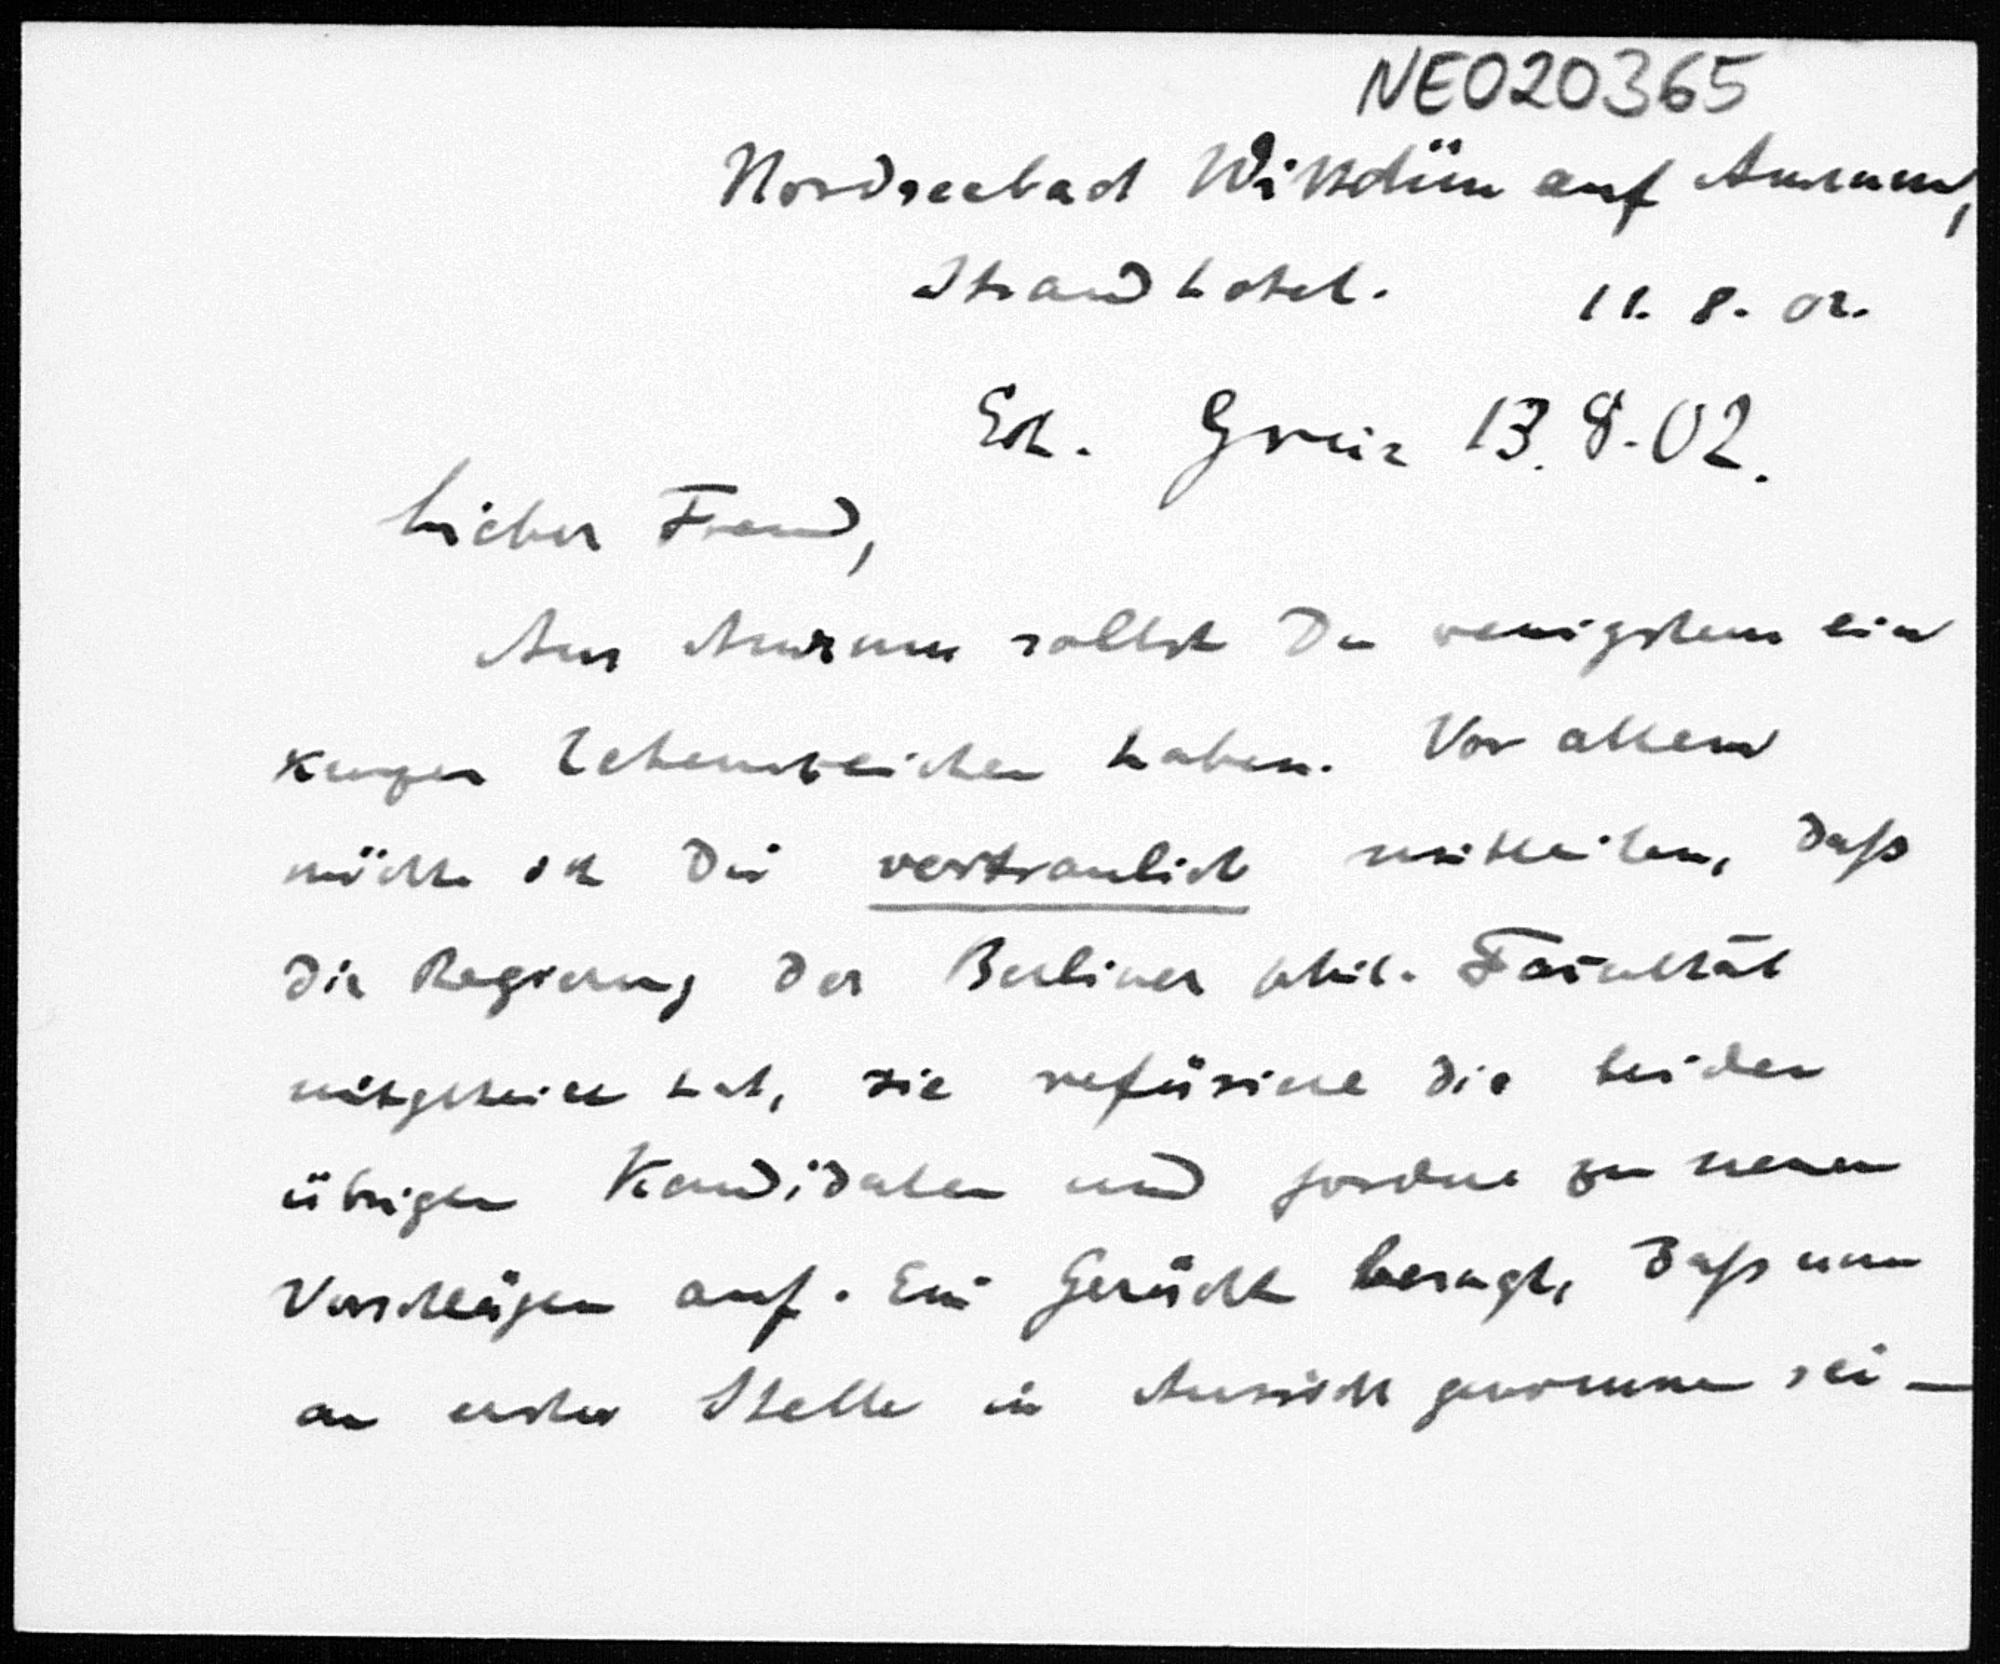 NE020365
Nordseebad Wittdün auf Amrum,
Strandhotel. 11. 8. 02.
Erh. Greiz 13. 8. 02.
Lieber Freund,
Aus Amrum sollst Du wenigstens ein
kurzes Lebenszeichen haben. Vor allem
möchte ich Dir vertraulich mitteilen, daß
die Regierung der Berliner phil. Facultät
mitgeteilt hat, sie refüsiere die beiden
übrigen Kandidaten und fordere zu neuen
Vorschlägen auf. Ein Gerücht besagt, daß nun
an erster Stelle in Aussicht genommen sei –